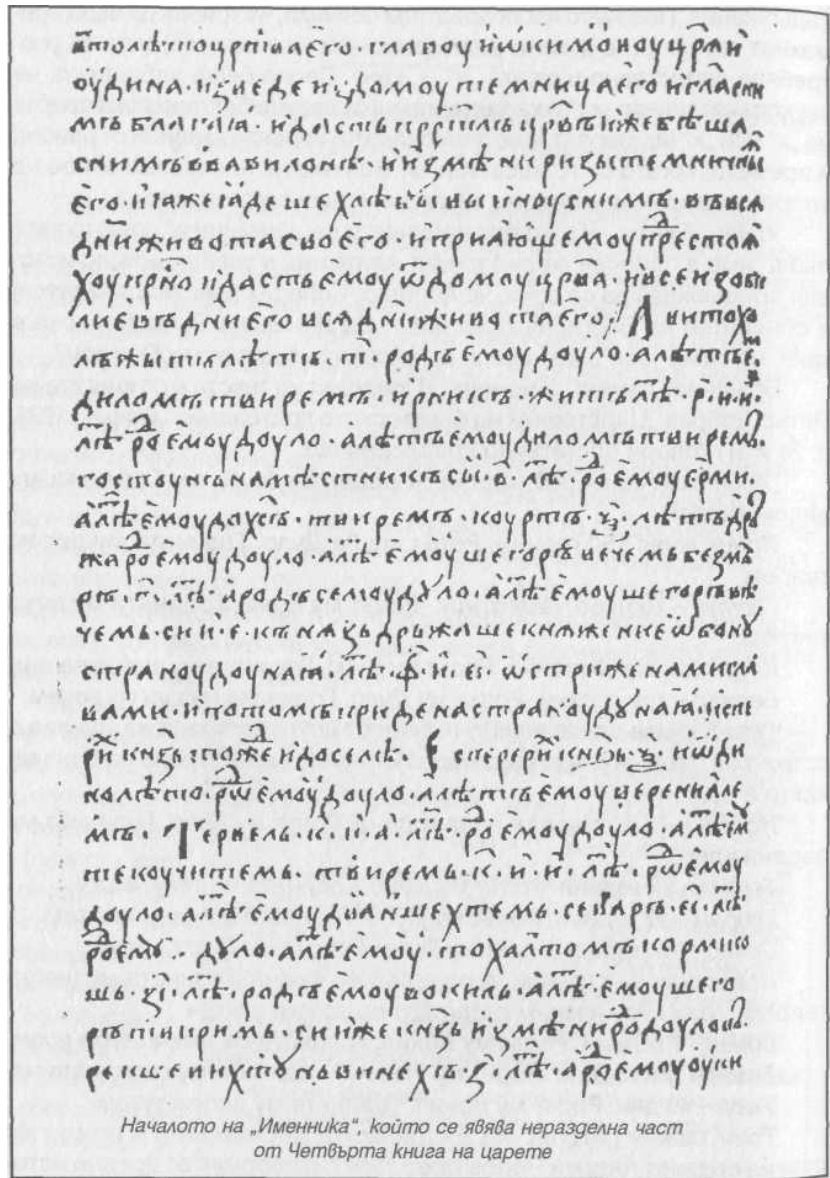 в҃толѣтоцрⷭ҇тваего · главоуиѡакимоноуцр҃ѧи
оудина · и изведеи издомоутемницаего иглаений
мъблагаꙗ · идастьпрⷭ҇тлъ цр҃въ ижебѣша
снимъ ввавилонѣ · и измѣниризытемничныꙗ
его · иꙗжеꙗдешехлѣбъ выиноуснимъ · въвсѧ
дниживотасвоего · иприающемоу престоꙗ
хоупрⷭ҇но идастьемоу ѿдомоуцр҃ва · ивсеизоби
лиевъдниего всѧдниживотаего · Авитохо
лъжытлѣтъ · т҃ · родъемоудоуло · алѣтъе
диломътвиремъ · ирникъ · житълѣⷮ · р҃ · и · и ·
лѣⷮ · роⷣемоудоуло · алѣтъемоудиломътвиремь ·
гостоунънамѣстникъсы · в҃ · лѣⷮ · роⷣемоуерми ·
алѣⷮемоудохсъ · твиремъ · коуртъ · ѯ҃ · лѣтъдръ
жароⷣемоудоуло · алѣⷮемоушегоръвечемь безмѣ
ръ · г҃ · лѣⷮ · ародъсемоудꙋло · алѣⷮемоушегоръве
чемь · сии · е҃ · кънѧзь дръжашекнѧжениеѿбонꙋ
странꙋдоунаꙗ · лѣⷮ · ф҃ · и · е҃і · ѡстриженамигла
вами · ипотомъпридена странꙋдꙋнаꙗ · испе
рихкнѧзь тожеидоселѣ · Есперерихкнѧзь · ѯ҃ · иѡди
нолѣтороⷣемоудоуло · алѣтъемоуверениале
мъ · Тервель · к · и · а · лѣⷮ · роⷣемоудоуло · алѣⷮемꙋ
текоучитемь · твиремь · к · и · и · лѣⷮ · роⷣемоу
доуло · алѣⷮемоудваншехтемь · севаръ · е҃і · лѣⷮ
роⷣемꙋ · дꙋло · алѣⷮемоу · тохалтомъкормисо
шь · з҃і · лѣⷮ · родъемоувокиль · алѣⷮ · емоушего
рътвиримь · сииже кнѧзь измѣниродоулов
рекшевихтꙋнь винехъ · з҃ · лѣⷮ · ароⷣемоуоуки
Началото на „Именника", който се явява неразделна част
от Четвърта книга на царете